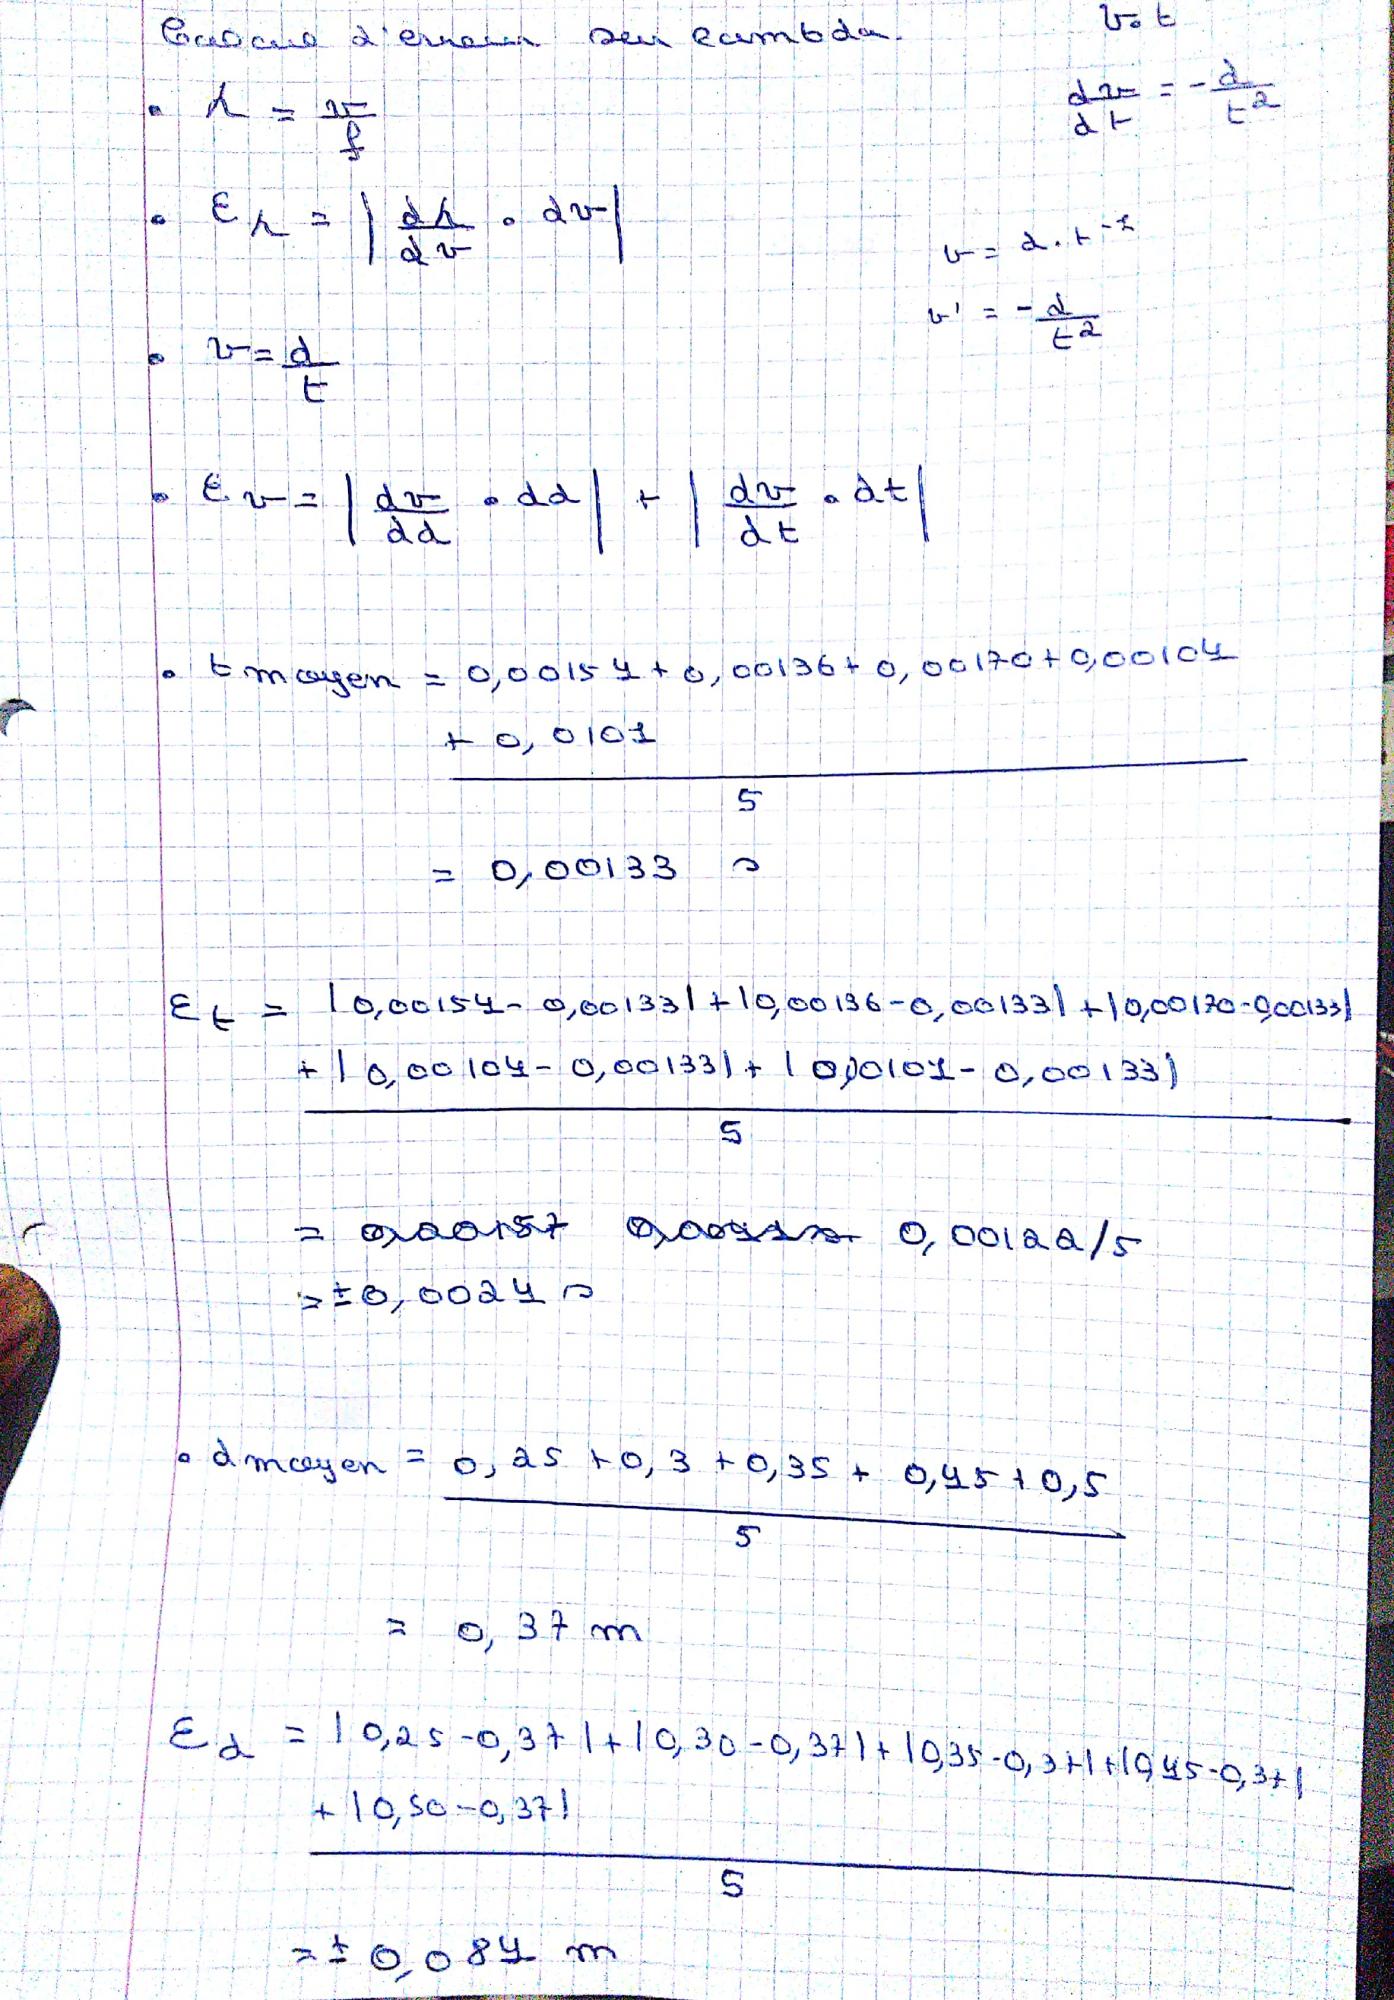 Calcul d'erreur sur lambda.
v. t
dv/dt = - d/t²
• λ = v/f
• ελ = | dλ/dv • dv |
v = d . t⁻¹
v' = - d/t²
• v = d/t
• εv = | dv/dd • dd | + | dv/dt • dt |
• t moyen = 0,00154 + 0,00136 + 0,00170 + 0,00104
+ 0,0101
5
= 0,00133 s
εt = |0,00154 - 0,00133| + |0,00136 - 0,00133| + |0,00170 - 0,00133|
+ |0,00104 - 0,00133| + |0,0101 - 0,00133|
5
= 0,00122/5
= ± 0,0024 s
• d moyen = 0,25 + 0,3 + 0,35 + 0,45 + 0,5
5
= 0,37 m
εd = |0,25 - 0,37| + |0,30 - 0,37| + |0,35 - 0,37| + |0,45 - 0,37|
+ |0,50 - 0,37|
5
= ± 0,084 m